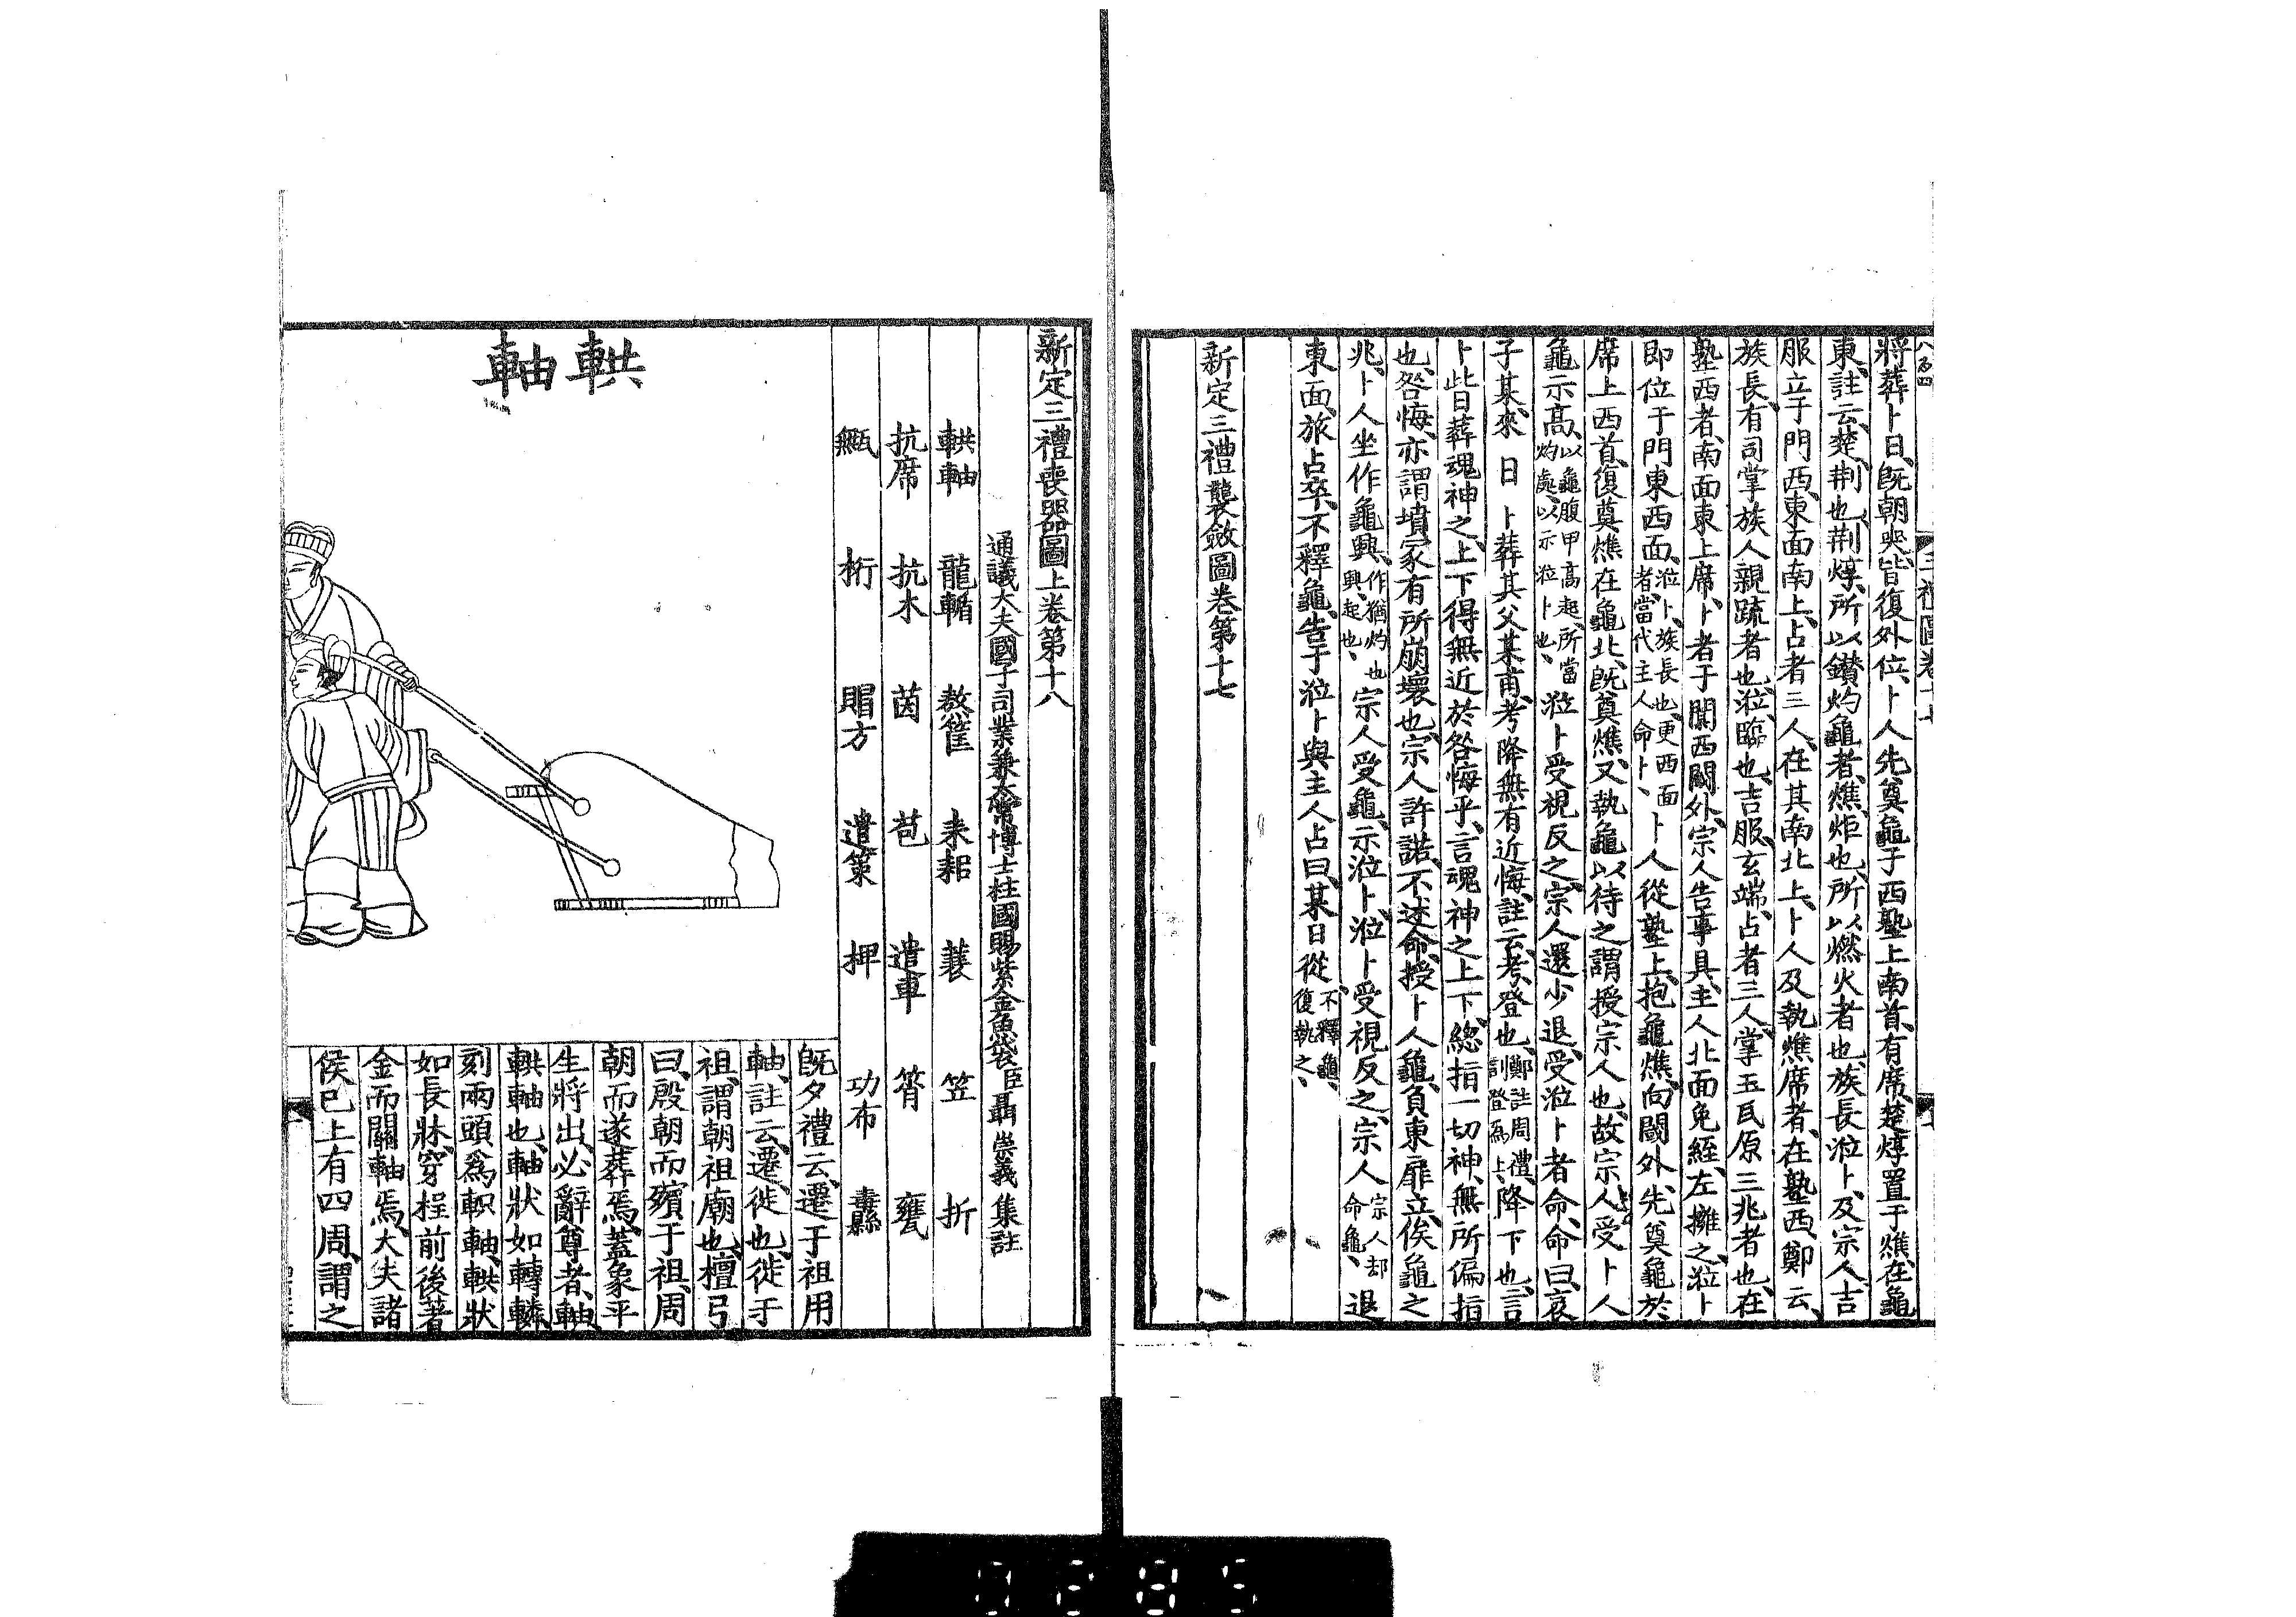 八百四 三禮圖卷十七
將葬卜日、旣朝哭、皆復外位、卜人先奠龜于西塾上南首、有席、楚焞置于燋、在龜
東、註云、楚、荆也、荆焞、所以鑽灼龜者、燋、炬也、所以燃火者也、族長涖卜、及宗人、吉
服立于門西、東面南上、占者三人、在其南北上、卜人及執燋席者、在塾西、鄭云、
族長、有司掌族人親疏者也、涖、臨也、吉服、玄端、占者三人、掌玉瓦原三兆者也、在
塾西者、南面東上席、卜者于闑西閾外、宗人告事具、主人北面免絰、左擁之、涖卜
即位于門東西面、涖卜、族長也、更西面者、當代主人命卜、卜人從塾上、抱龜燋、向閾外、先奠龜於
席上西首、復奠燋在龜北、旣奠燋、又執龜以待之、謂授宗人也、故宗人受卜人
龜示高、以龜腹甲高起、所當灼處、以示涖卜也、涖卜受視反之、宗人還少退、受涖卜者命、命曰、哀
子某、來日卜葬其父某甫、考降無有近悔、註云、考、登也、鄭註周禮、訓登爲上、降、下也、言
卜此日葬魂神之上下得無近於咎悔乎、言魂神之上下、緫指一切神、無所偏指
也、咎悔、亦謂墳冢有所崩壞也、宗人許諾、不述命、授卜人龜、負東扉立、俟龜之
兆、卜人坐作龜興、作猶灼也、興、起也、宗人受龜、示涖卜、涖卜受視反之、宗人宗人却命龜、退
東面、旅占卒、不釋龜、告于涖卜與主人占曰、某日從不釋龜、復執之、
新定三禮襲斂圖卷第十七
新定三禮喪器圖上卷第十八
通議大夫國子司業兼太常博士柱國賜紫金魚袋臣聶崇義集註
輁軸 龍輴 熬筐 耒耜 蓑 笠 折
抗席 抗木 茵 苞 遣車 筲 甕
甒 桁 賵方 遣策 柙 功布 纛
輁軸
旣夕禮云、遷于祖用
軸、註云、遷、徙也、徙于
祖、謂朝祖廟也、檀弓
曰、殷朝而殯于祖、周
朝而遂葬焉、蓋象平
生將出、必辭尊者、軸、
輁軸也、軸狀如轉轔、
刻兩頭爲軹軸、輁狀
如長牀、穿桯前後著
金而關軸焉、大夫諸
侯已上有四周、謂之
0285